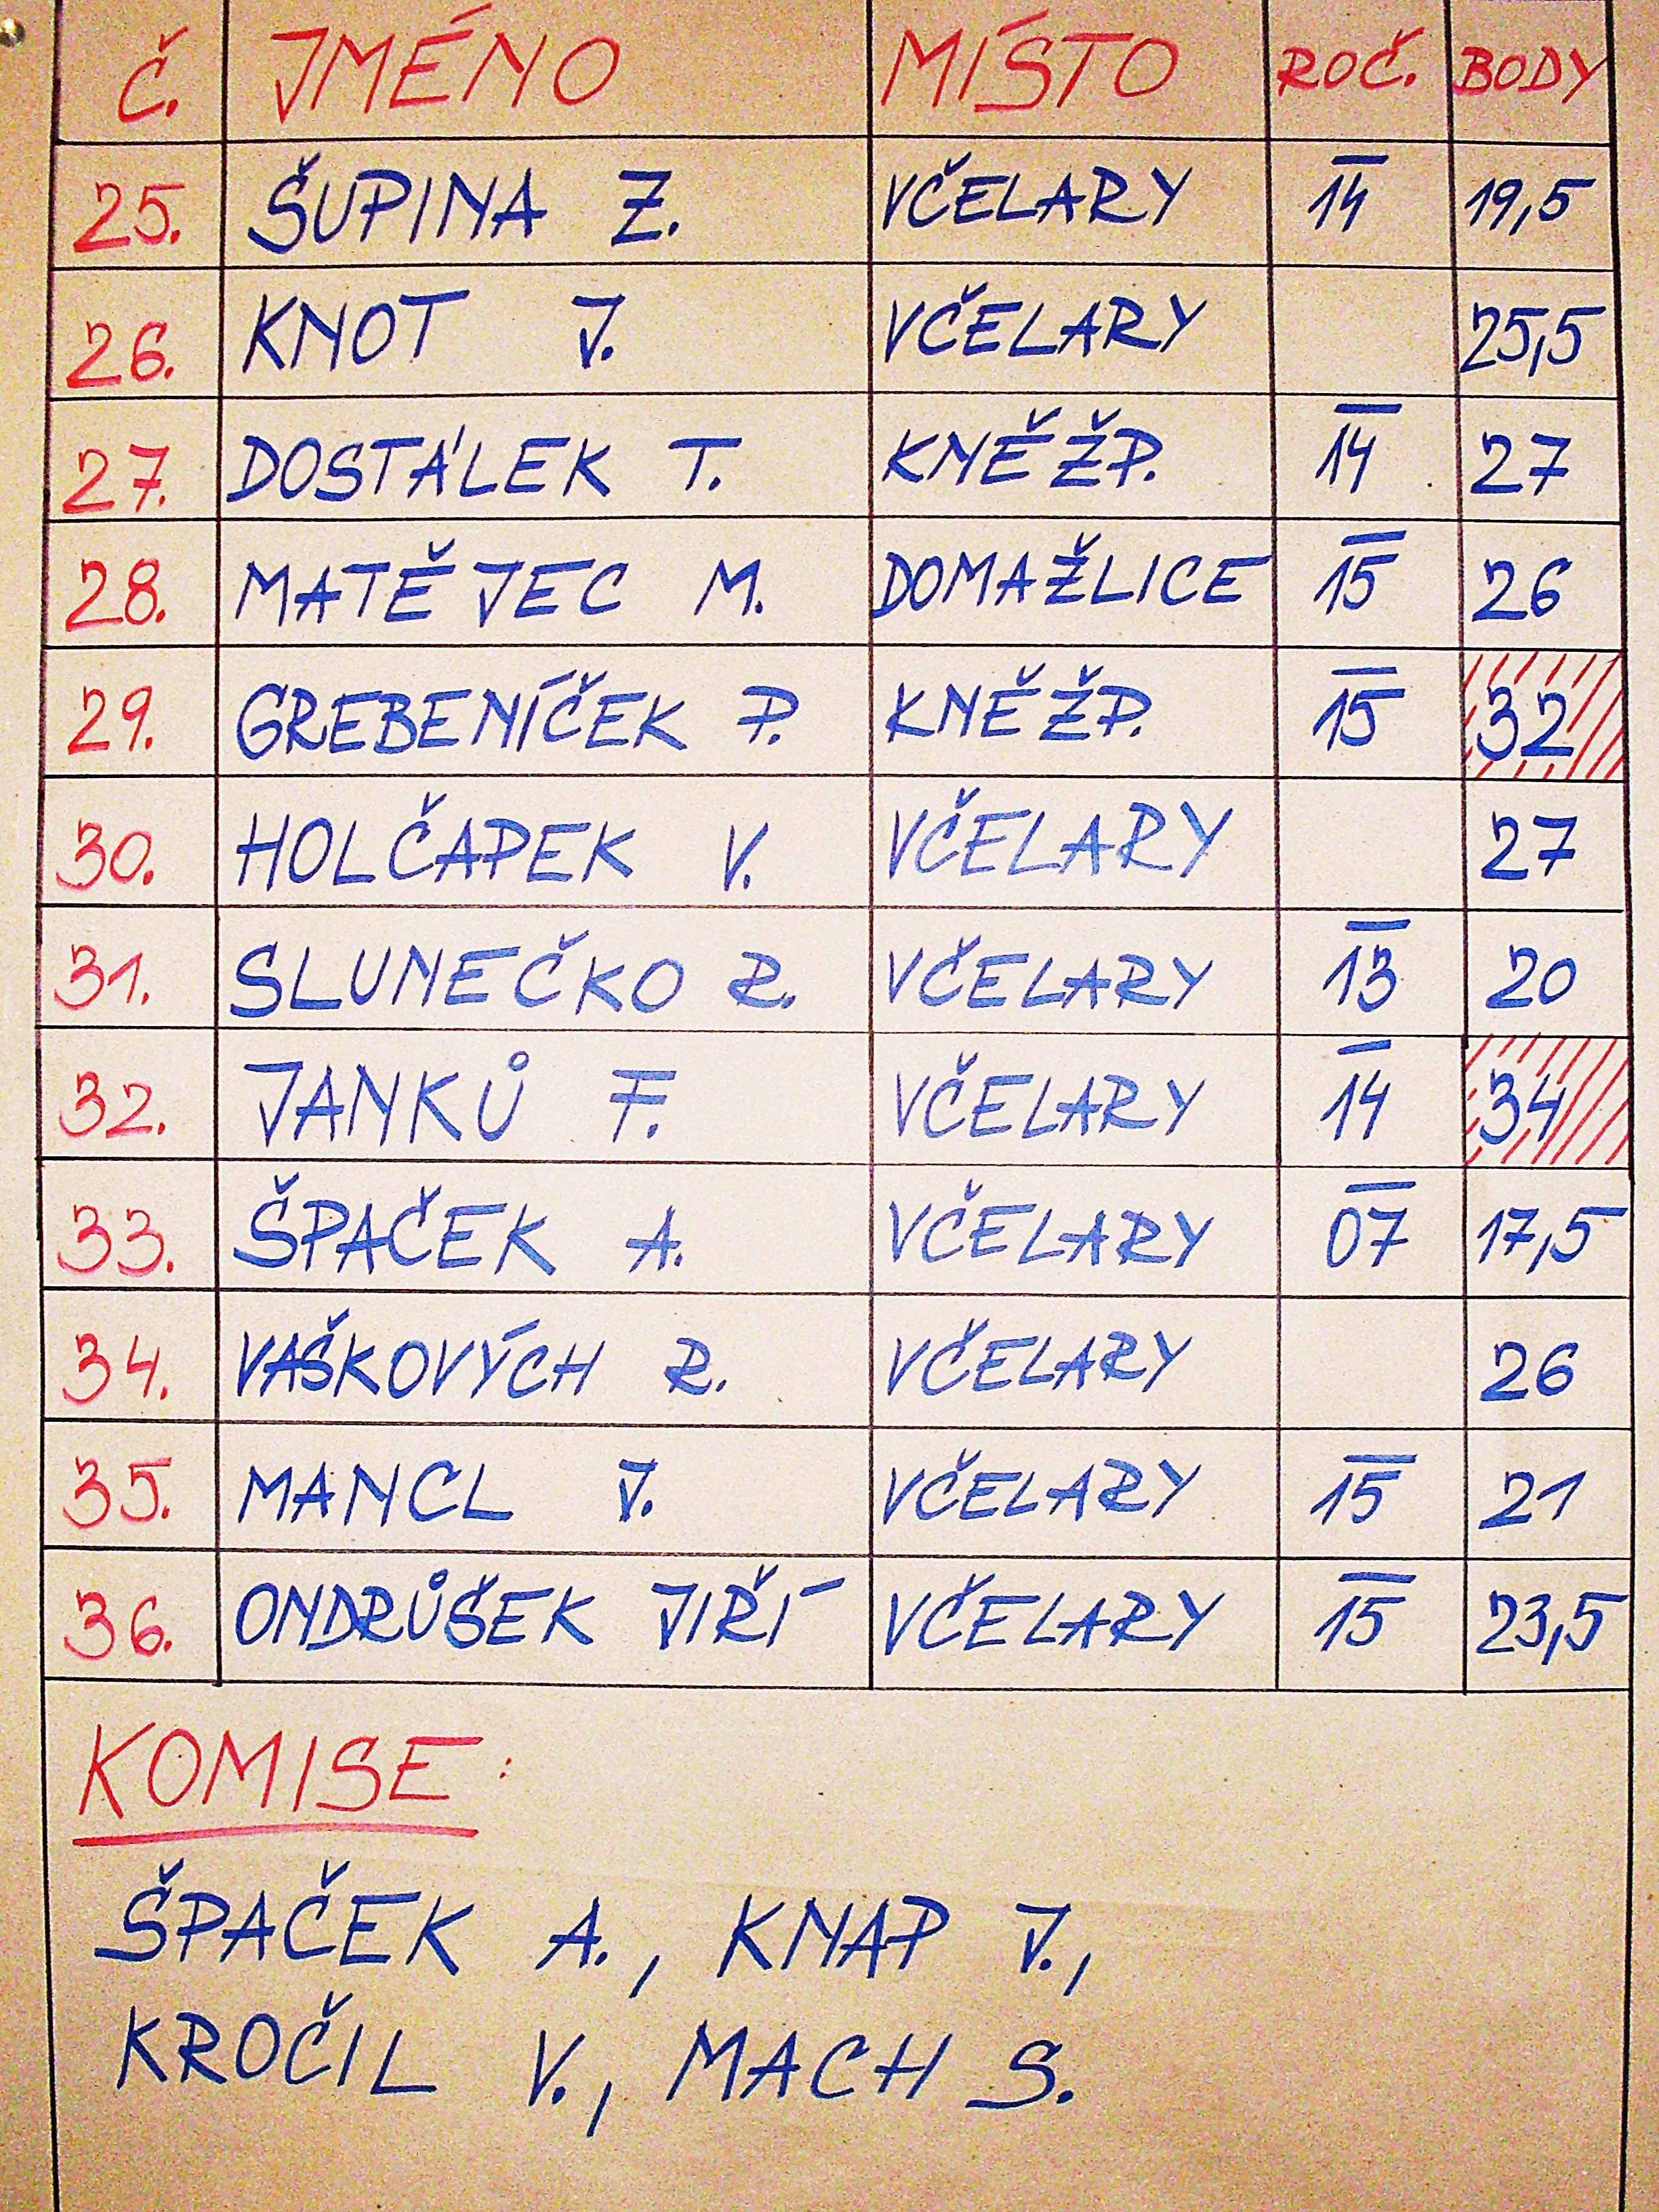 Č. JMÉNO MÍSTO ROČ. BODY
25. ŠUPINA Z. VČELARY 14 19,5
26. KNOT J. VČELARY 25,5
27. DOSTÁLEK T. KNĚŽP. 14 27
28. MATĚJEC M. DOMAŽLICE 15 26
29. GREBENÍČEK P. KNĚŽP. 15 32
30. HOLČAPEK V. VČELARY 27
31. SLUNEČKO R. VČELARY 13 20
32. JANKŮ F. VČELARY 14 34
33. ŠPAČEK A. VČELARY 07 17,5
34. VAŠKOVÝCH R. VČELARY 26
35. MANCL J. VČELARY 15 21
36. ONDRŮŠEK JIŘÍ VČELARY 15 23,5
KOMISE:
ŠPAČEK A., KNAP J.,
KROČIL V., MACH S.